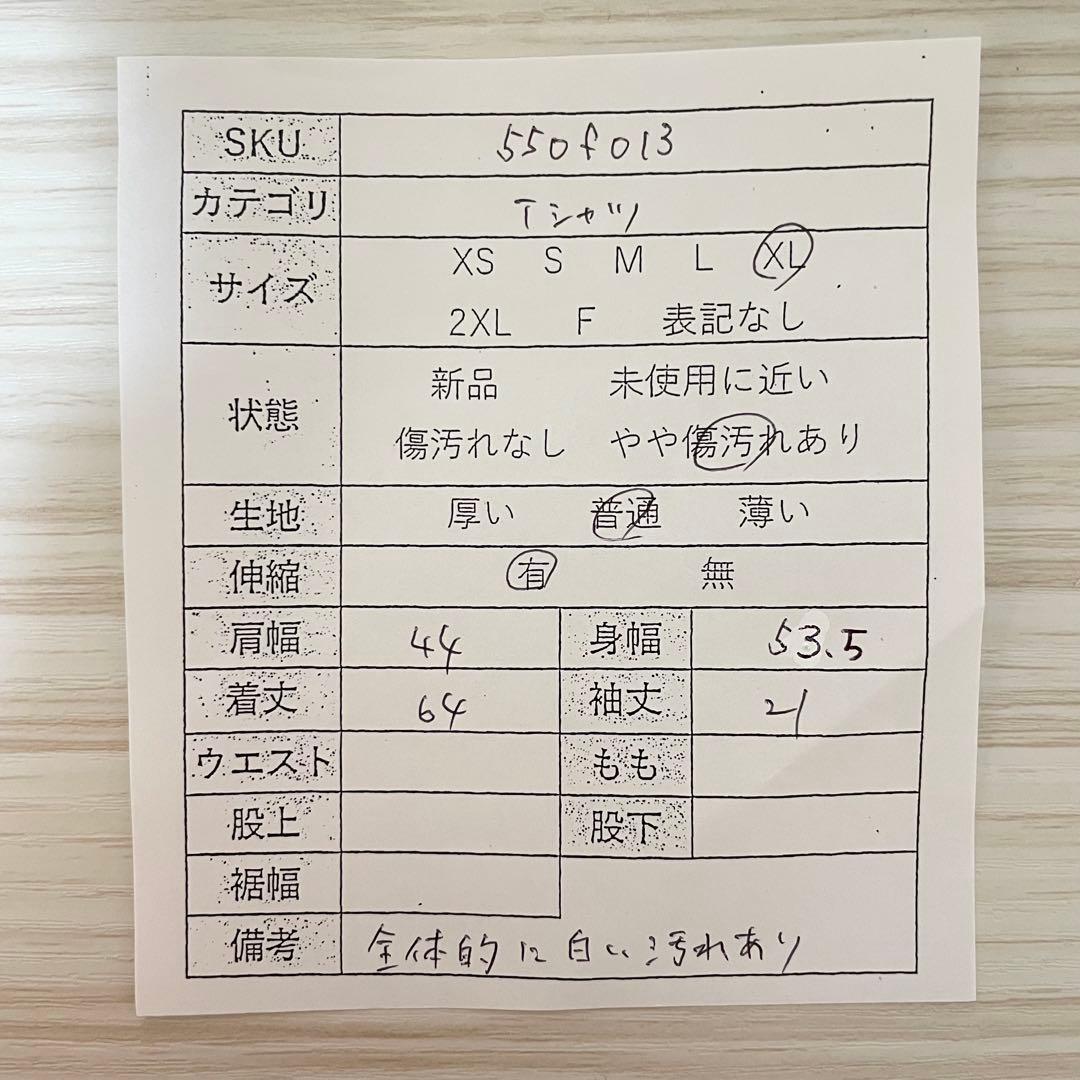 SKU 550f013
カテゴリ Tシャツ
サイズ XS S M L XL
2XL F 表記なし
状態 新品 未使用に近い
傷汚れなし やや傷汚れあり
生地 厚い 普通 薄い
伸縮 有 無
肩幅 44 身幅 53.5
着丈 64 袖丈 21
ウエスト もも
股上 股下
裾幅
備考 全体的に白い汚れあり